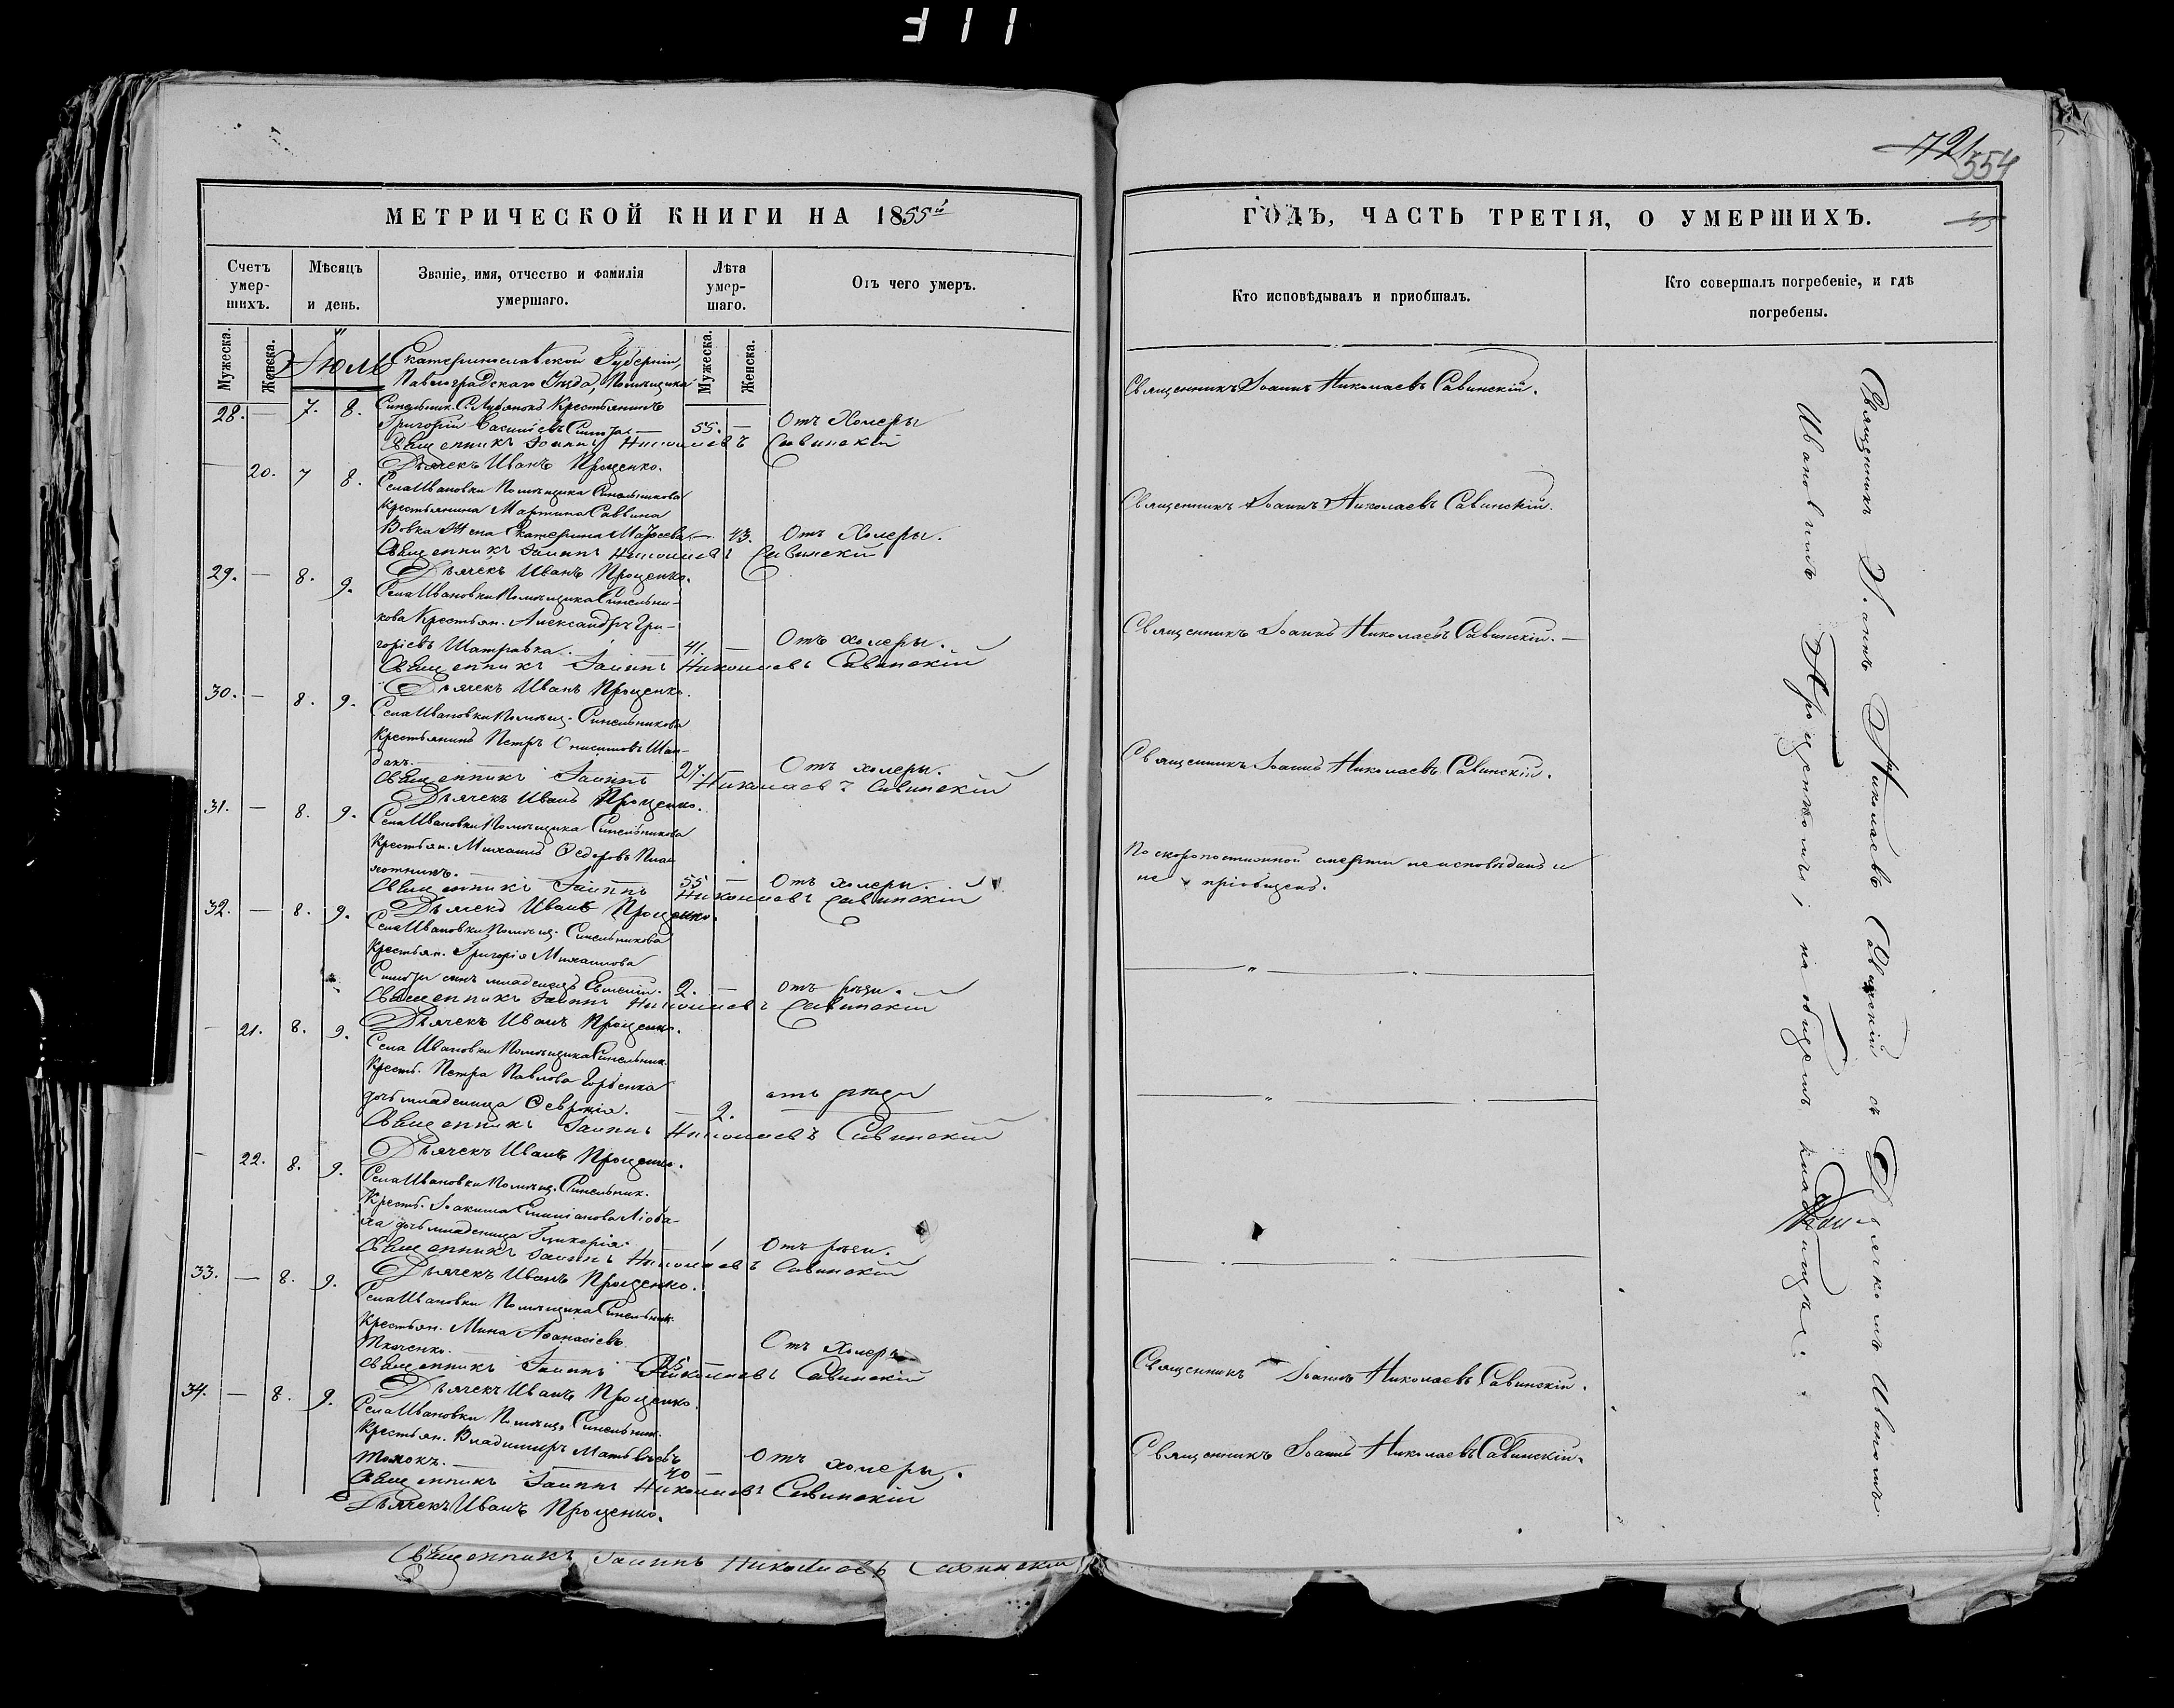 311
МЕТРИЧЕСКОЙ КНИГИ НА 1855й
Счетъ умер-
шихъ.
Мѣсяцъ
и день.
Званіе, имя, отчество и фамилія
умершаго.
Лѣта
умер-
шаго.
Отъ чего умеръ.
Мужеска.
Женска.
Мужеска.
Женска.
Іюль
Екатеринославской Губерніи,
Павлоградскаго Уѣзда, Помѣщика
28. — 7. 8. Синельник. Крестьянинъ
Григорій 55. — Отъ Холеры
Священникъ Іоаннъ Николаевъ Савинскій
Дьячекъ Иванъ Проценко.
— 20. 7 8. Села Ивановки Помѣщика Синельникова
Крестьянина Мартина Саввина
Вовка Жена Екатерина — 43. Отъ Холеры.
Священникъ Іоаннъ Николаевъ Савинскій
Дьячекъ Иванъ Проценко.
29. — 8. 9. Села Ивановки Помѣщика Синельни-
кова Крестьян. Александръ Гри-
горіевъ Шатравка. 41. — Отъ холеры.
Священникъ Іоаннъ Николаевъ Савинскій
Дьячекъ Иванъ Проценко.
30. — 8. 9. Села Ивановки Помѣщ. Синельникова
Крестьянинъ Петръ
27. — Отъ холеры.
Священникъ Іоаннъ Николаевъ Савинскій
Дьячекъ Иванъ Проценко.
31. — 8. 9. Села Ивановки Помѣщика Синельникова
Крестьян. Михаилъ Ѳедоровъ
55 — Отъ холеры.
Священникъ Іоаннъ Николаевъ Савинскій
Дьячекъ Иванъ Проценко.
32. — 8. 9. Села Ивановки Помѣщ. Синельникова
Крестьян. Григорія Михаилова
сынъ младенецъ Евгеній. 2. — отъ рѣзи.
Священникъ Іоаннъ Николаевъ Савинскій
Дьячекъ Иванъ Проценко.
— 21. 8. 9. Села Ивановки Помѣщика Синельник.
Крестьян. Петра Павлова Горбенка
дочь младеница Ѳевронія. — 2. отъ рѣзи
Священникъ Іоаннъ Николаевъ Савинскій
Дьячекъ Иванъ Проценко.
— 22. 8. 9. Села Ивановки Помѣщ. Синельник.
Крестьян. Іоакима
дочь младеница Гликерія. 1 Отъ рѣзи.
Священникъ Іоаннъ Николаевъ Савинскій
Дьячекъ Иванъ Проценко.
33. — 8. 9. Села Ивановки Помѣщика Синельник.
Крестьян. Мина Аѳанасіевъ
Ткаченко. 25 Отъ Холеры
Священникъ Іоаннъ Николаевъ Савинскій
Дьячекъ Иванъ Проценко.
34. — 8. 9. Села Ивановки Помѣщ. Синельник.
Крестьян. Владимиръ Матвѣевъ
40 — Отъ холеры.
Священникъ Іоаннъ Николаевъ Савинскій
Дьячекъ Иванъ Проценко.
Священникъ Іоаннъ Николаевъ Савинскій
721
554
ГОДЪ, ЧАСТЬ ТРЕТІЯ, О УМЕРШИХЪ.
Кто исповѣдывалъ и пріобщалъ.
Кто совершалъ погребеніе, и гдѣ
погребены.
Священникъ Іоаннъ Николаевъ Савинскій.
Священникъ Іоаннъ Николаевъ Савинскій.
Священникъ Іоаннъ Николаевъ Савинскій. —
Священникъ Іоаннъ Николаевъ Савинскій.
По скоропостижной смерти не исповѣданъ и
не пріобщенъ.
Священникъ Іоаннъ Николаевъ Савинскій.
Священникъ Іоаннъ Николаевъ Савинскій.
Священникъ Іоаннъ Николаевъ Савинскій съ Дьячкомъ Иваномъ
Ивановымъ Проценкомъ, на общемъ кладбищѣ.